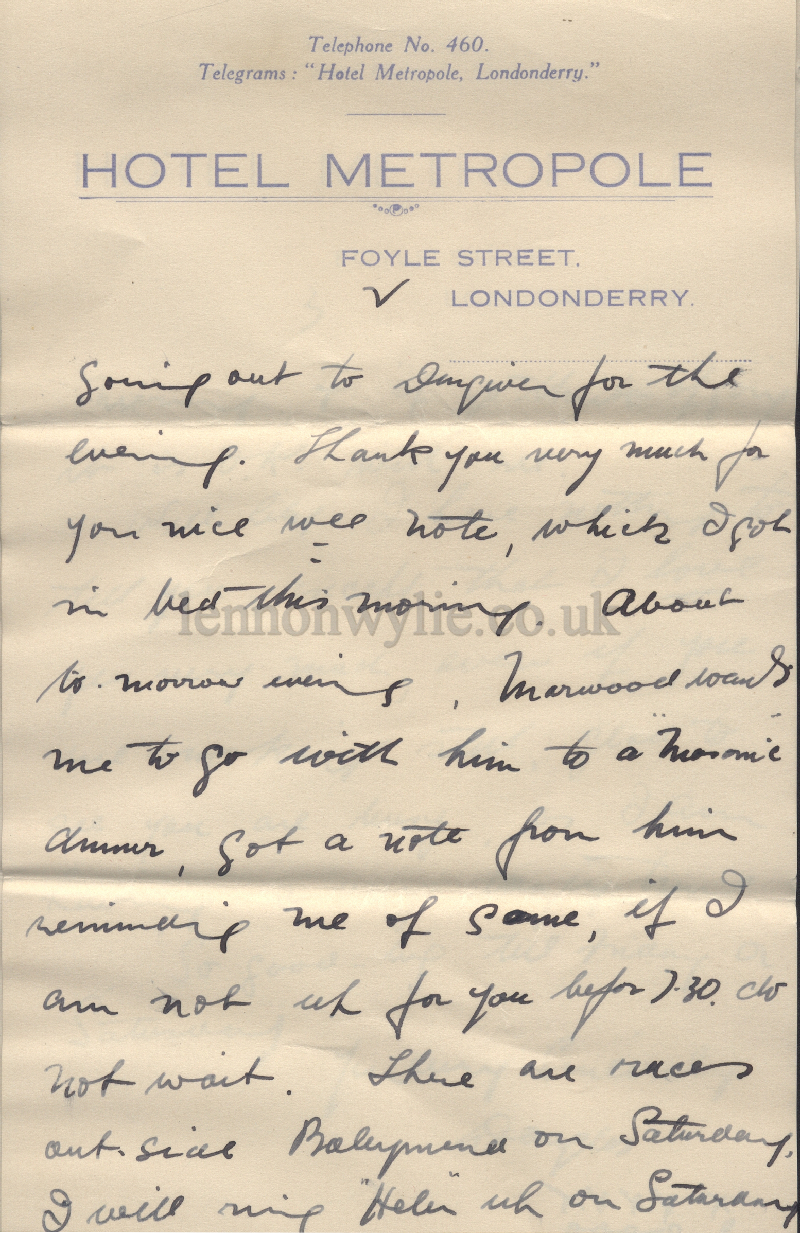 Telephone No. 460.
Telegrams: "Hotel Metropole, Londonderry."
HOTEL METROPOLE
FOYLE STREET,
LONDONDERRY.
Going out to Dungiven for the
evening. Thank you very much for
your nice wee note, which I got
in bed this morning. About
to-morrow evening, Marwood wants
me to go with him to a "Masonic"
dinner, got a note from him
reminding me of same, if I
am not up for you before 7.30. do
not wait. There are races
out-side Ballymena on Saturday,
I will ring "Helen" up on Saturday
lennonwylie.co.uk